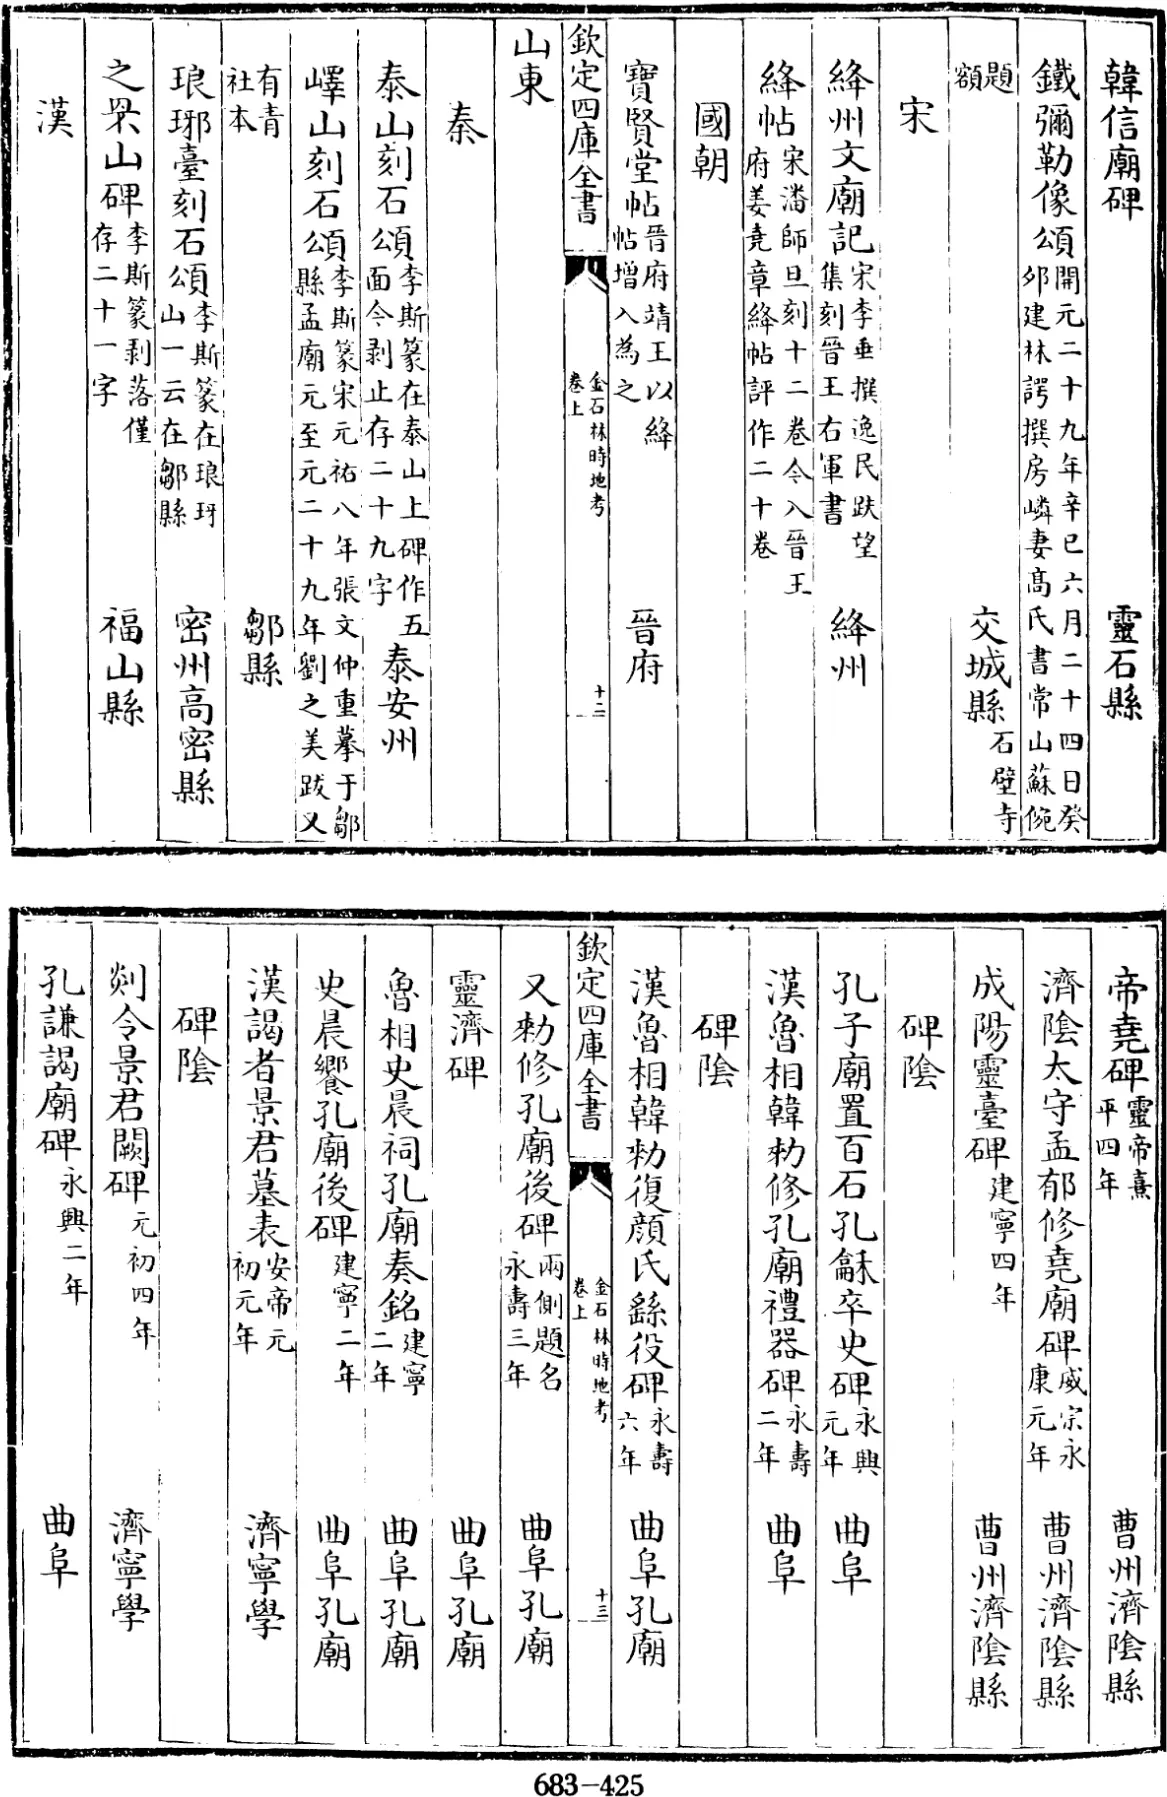 韓信廟碑 靈石縣
鐵彌勒像頌開元二十九年辛巳六月二十四日癸
邜建林諤撰房嶙妻髙氏書常山蘇倇
題
額 交城縣石壁寺
宋
絳州文廟記宋李垂撰逸民䟦望
集刻晉王右軍書 絳州
絳帖宋潘師旦刻十二卷今入晉王
府姜堯章絳帖評作二十卷
國朝
寶賢堂帖晉府靖王以絳
帖增入為之 晉府
欽定四庫全書 金石林時地考
卷上 十二
山東
秦
泰山刻石頌李斯篆在泰山上碑作五
面今剥止存二十九字 泰安州
嶧山刻石頌李斯篆宋元祐八年張文仲重摹于鄒
縣孟廟元至元二十九年劉之美跋又
有青
社本 鄒縣
琅琊臺刻石頌李斯篆在琅玡
山一云在鄒縣 密州高密縣
之罘山碑李斯篆剥落僅
存二十一字 福山縣
漢
帝堯碑靈帝熹
平四年 曹州濟隂縣
濟隂太守孟郁修堯廟碑威宗永
康元年 曹州濟隂縣
成陽靈臺碑建寧四年 曹州濟隂縣
碑隂
孔子廟置百石孔龢卒史碑永興
元年 曲阜
漢魯相韓勑修孔廟禮器碑永壽
二年 曲阜
碑隂
漢魯相韓勑復顔氏繇役碑永壽
六年 曲阜孔廟
欽定四庫全書 金石林時地考
卷上 十三
又勑修孔廟後碑兩側題名
永壽三年 曲阜孔廟
靈濟碑 曲阜孔廟
魯相史晨祠孔廟奏銘建寧
二年 曲阜孔廟
史晨饗孔廟後碑建寧二年 曲阜孔廟
漢謁者景君墓表安帝元
初元年 濟寧學
碑隂
剡令景君闕碑元初四年 濟寧學
孔謙謁廟碑永興二年 曲阜
683-425